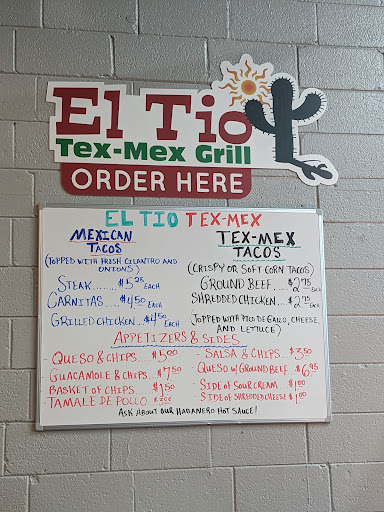 El Tio
Tex-Mex Grill
ORDER HERE
EL TIO TEX-MEX
MEXICAN
TACOS
(TOPPED WITH FRESH CILANTRO AND
ONIONS)
STEAK........$5.25 EACH
CARNITAS...$4.50 EACH
GRILLED CHICKEN...$4.50 EACH
TEX-MEX
TACOS
(CRISPY OR SOFT CORN TACOS)
GROUND BEEF.....$2.75 EACH
SHREDDED CHICKEN...$2.75 EACH
(TOPPED WITH PICO DE GALLO, CHEESE,
AND LETTUCE)
APPETIZERS & SIDES
- QUESO & CHIPS....$5.00
- GUACAMOLE & CHIPS...$7.50
- BASKET OF CHIPS....$1.50
- TAMALE DE POLLO...$3.00
- SALSA & CHIPS...$3.50
- QUESO W/ GROUND BEEF...$6.95
- SIDE OF SOUR CREAM...$1.00
- SIDE OF SHREDDED CHEESE $1.00
ASK ABOUT OUR HABANERO HOT SAUCE!